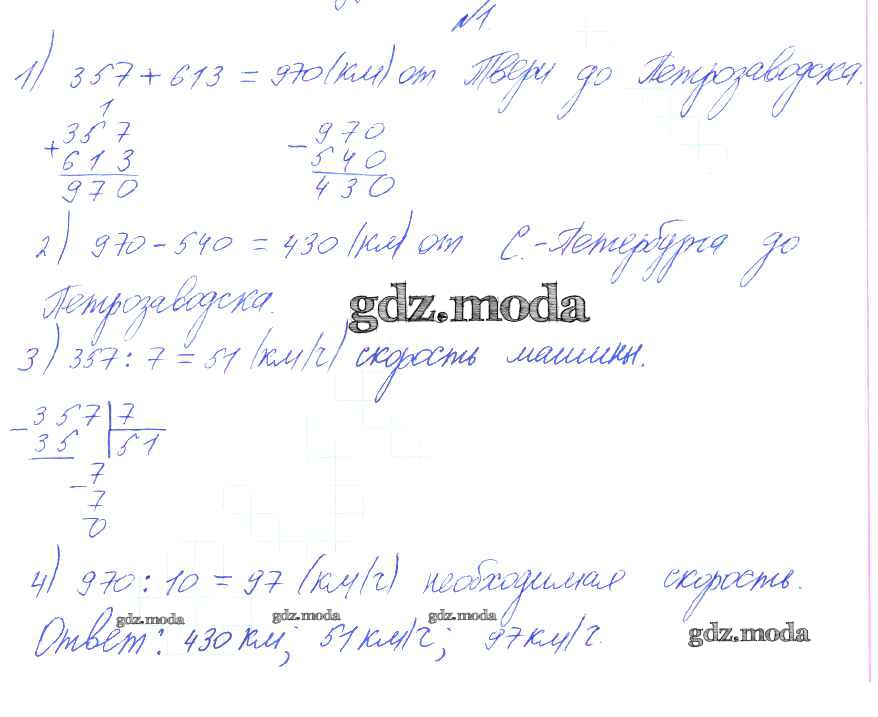 №1
1) 357 + 613 = 970 (км) от Твери до Петрозаводска.
1
+ 357
613
970
- 970
540
430
2) 970 - 540 = 430 (км) от С.-Петербурга до
Петрозаводска.
gdz.moda
3) 357 : 7 = 51 (км/ч) скорость машины.
- 357 | 7
35 | 51
- 7
7
0
4) 970 : 10 = 97 (км/ч) необходимая скорость.
gdz.moda gdz.moda gdz.moda
Ответ: 430 км; 51 км/ч; 97 км/ч.
gdz.moda